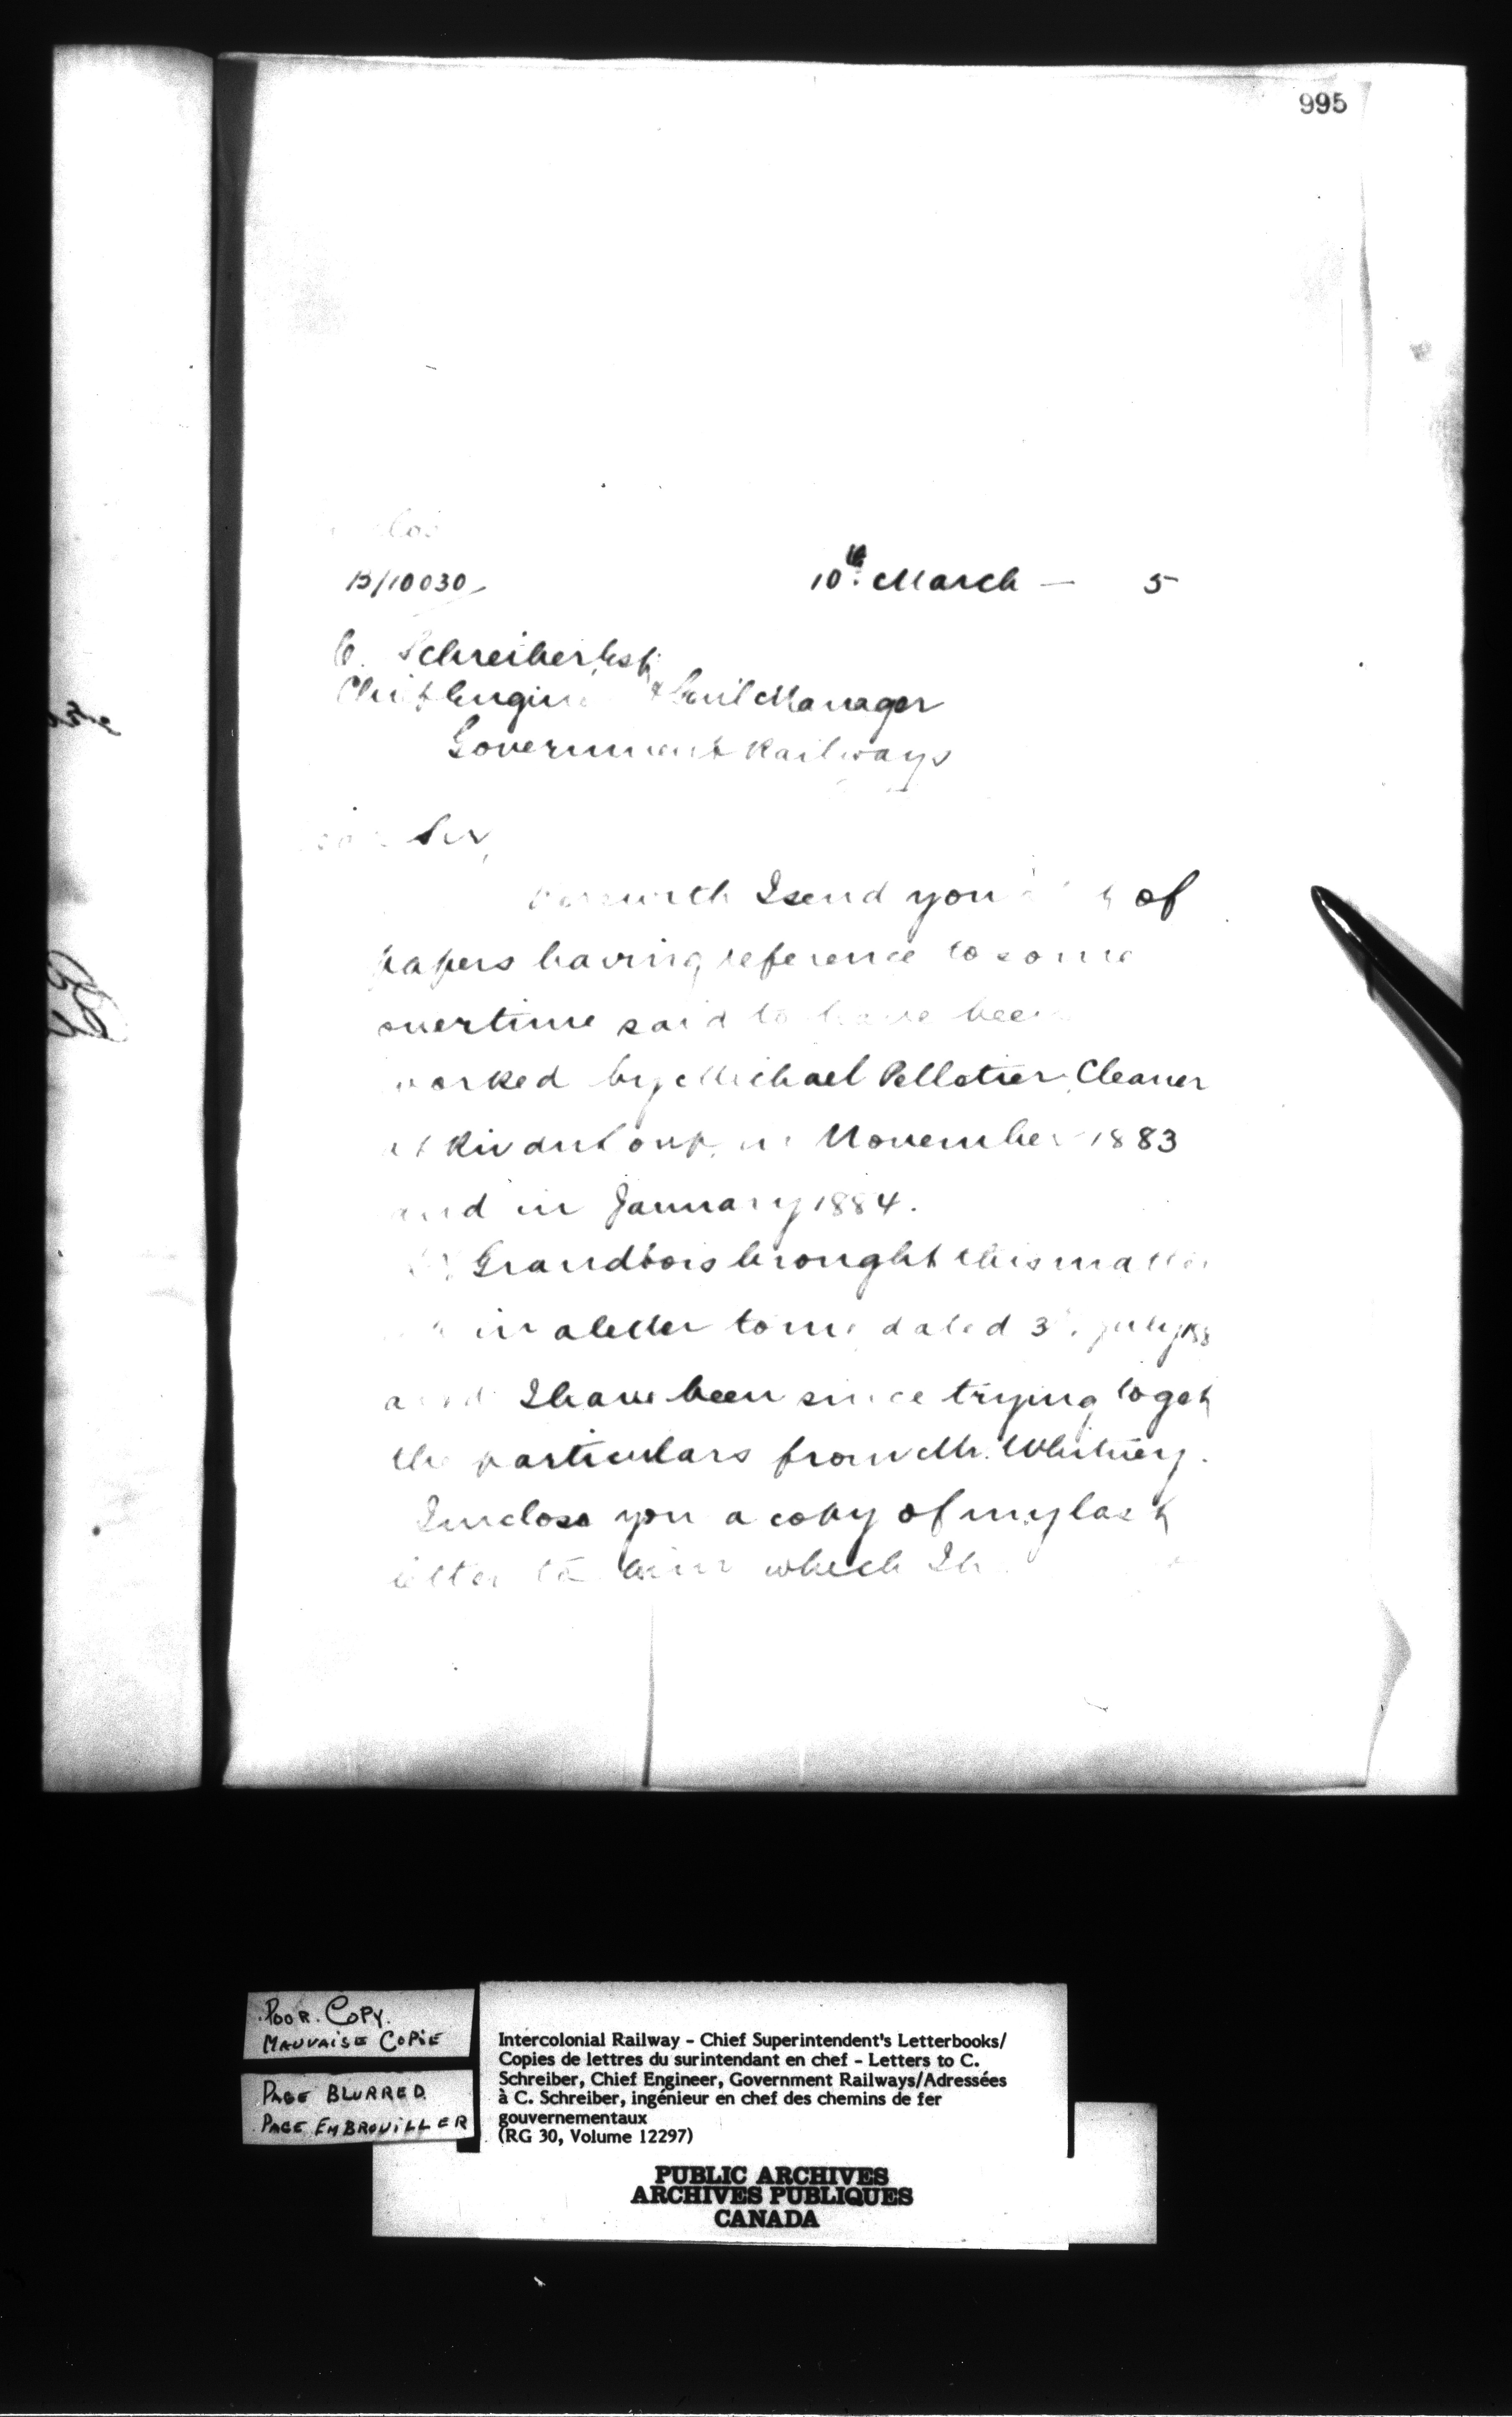 995
B/10030
10th March — 5
C. Schreiber Esq
Chief Engin & Genl Manager
Government Railways
Sir,
herewith I send you of
papers having reference to some
overtime said to have been
worked by Michael Pelletier Cleaner
at Riv du Loup in November 1883
and in January 1884.
Grandbois brought this matter
in a letter to me dated 3 July 188
and I have been since trying to get
the particulars from Mr. Whitney.
I inclose you a copy of my last
letter to him which I h
POOR COPY.
MAUVAISE COPIE
PAGE BLURRED.
PAGE EMBROUILLER
Intercolonial Railway - Chief Superintendent's Letterbooks/
Copies de lettres du surintendant en chef - Letters to C.
Schreiber, Chief Engineer, Government Railways/Adressées
à C. Schreiber, ingénieur en chef des chemins de fer
gouvernementaux
(RG 30, Volume 12297)
PUBLIC ARCHIVES
ARCHIVES PUBLIQUES
CANADA